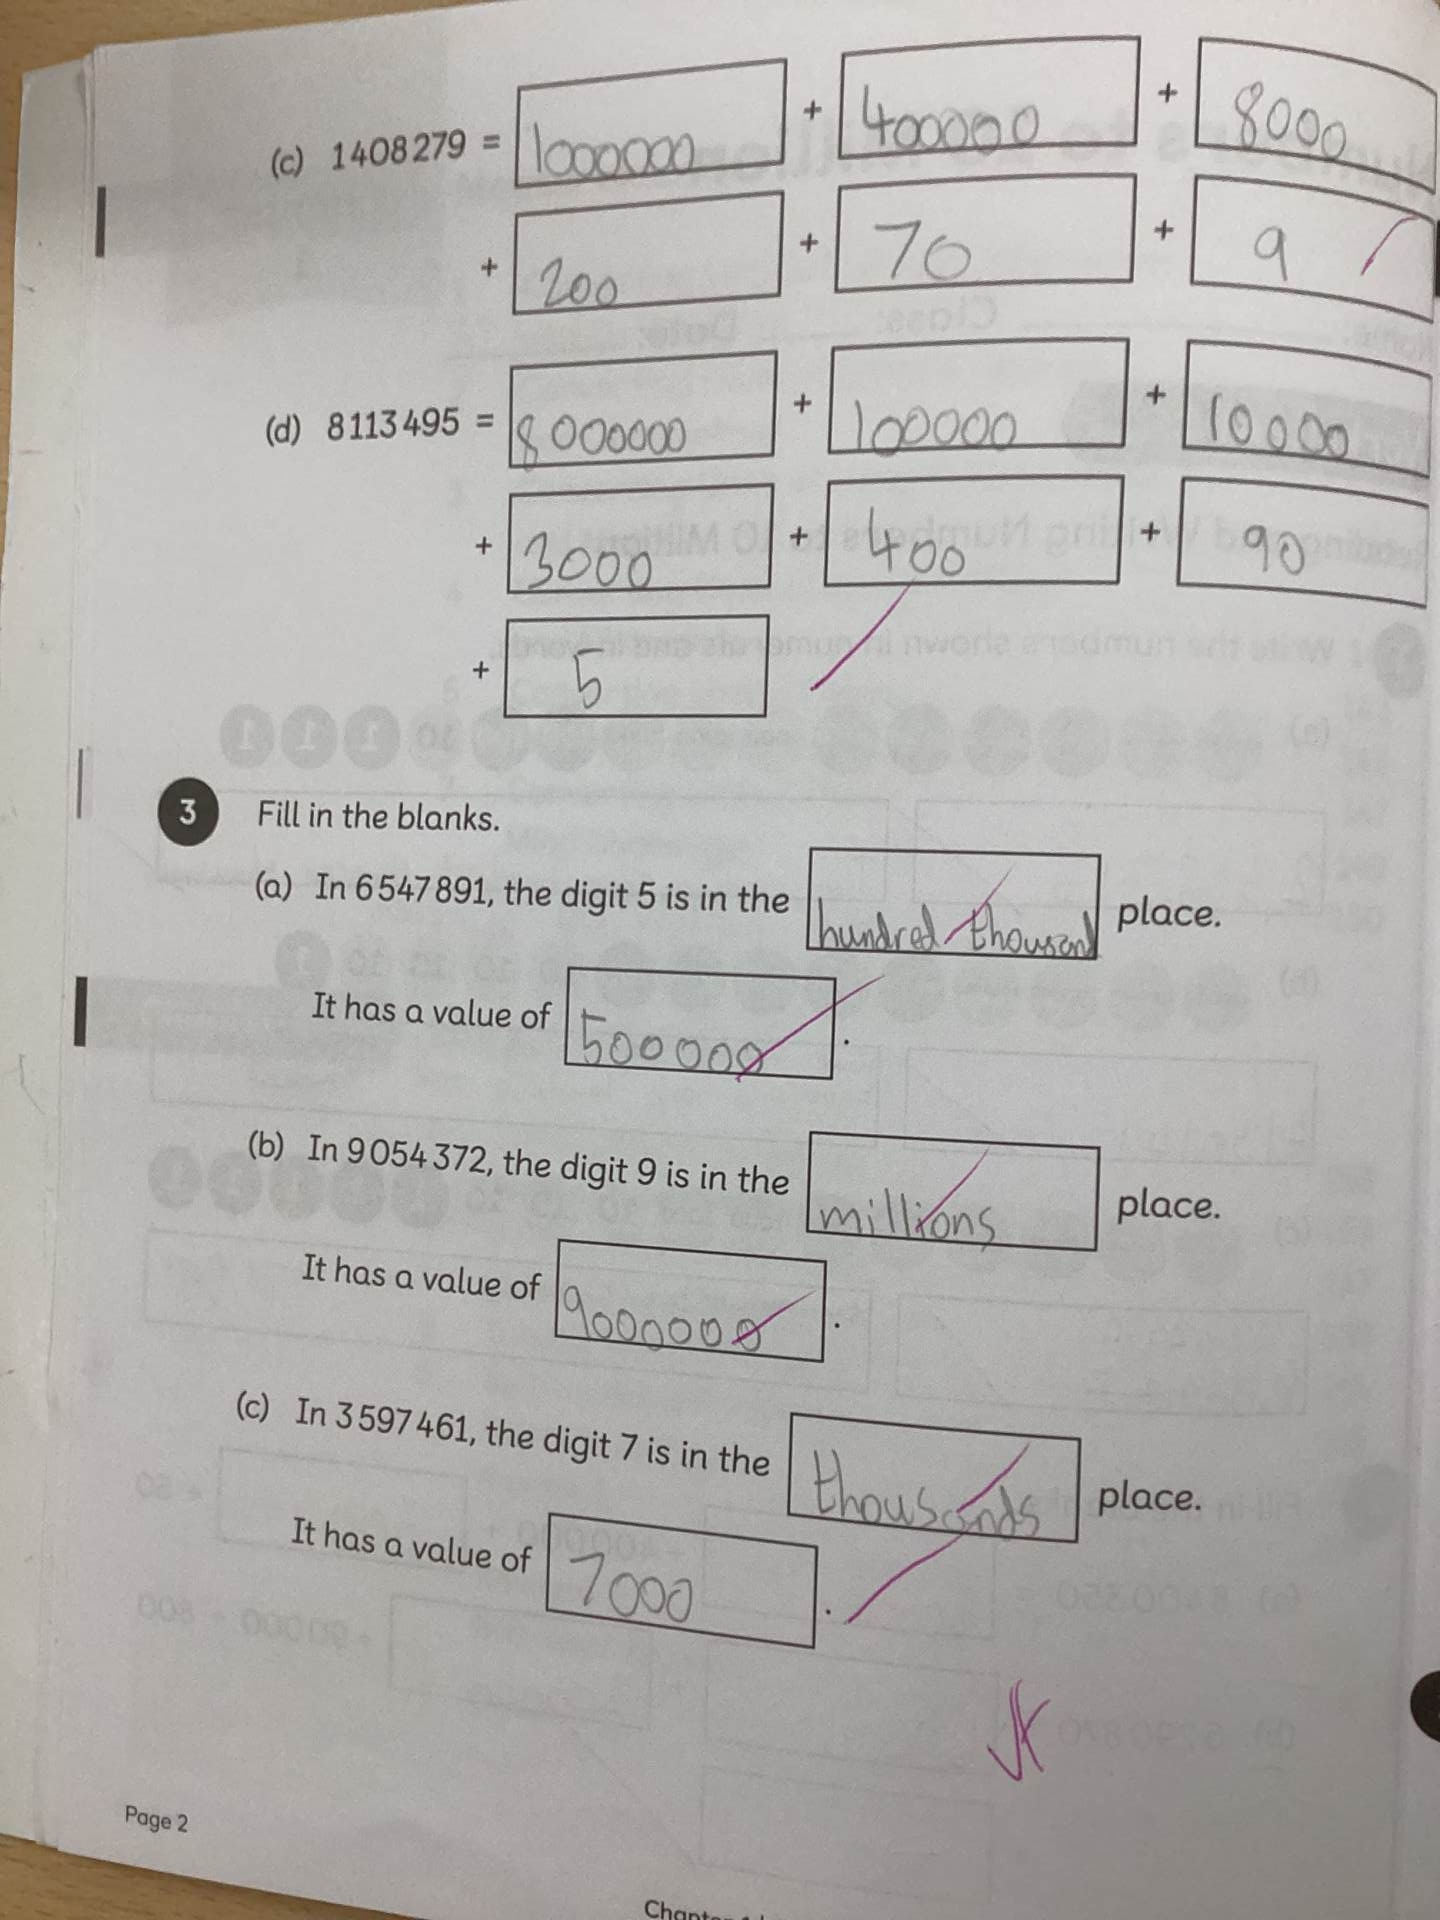 (c) 1408279 = 1000000 + 400000 + 8000
+ 200 + 70 + 9
(d) 8113495 = 8000000 + 100000 + 10000
+ 3000 + 400 + 90
+ 5
3 Fill in the blanks.
(a) In 6547891, the digit 5 is in the hundred thousand place.
It has a value of 500000.
(b) In 9054372, the digit 9 is in the millions place.
It has a value of 9000000.
(c) In 3597461, the digit 7 is in the thousands place.
It has a value of 7000.
Page 2